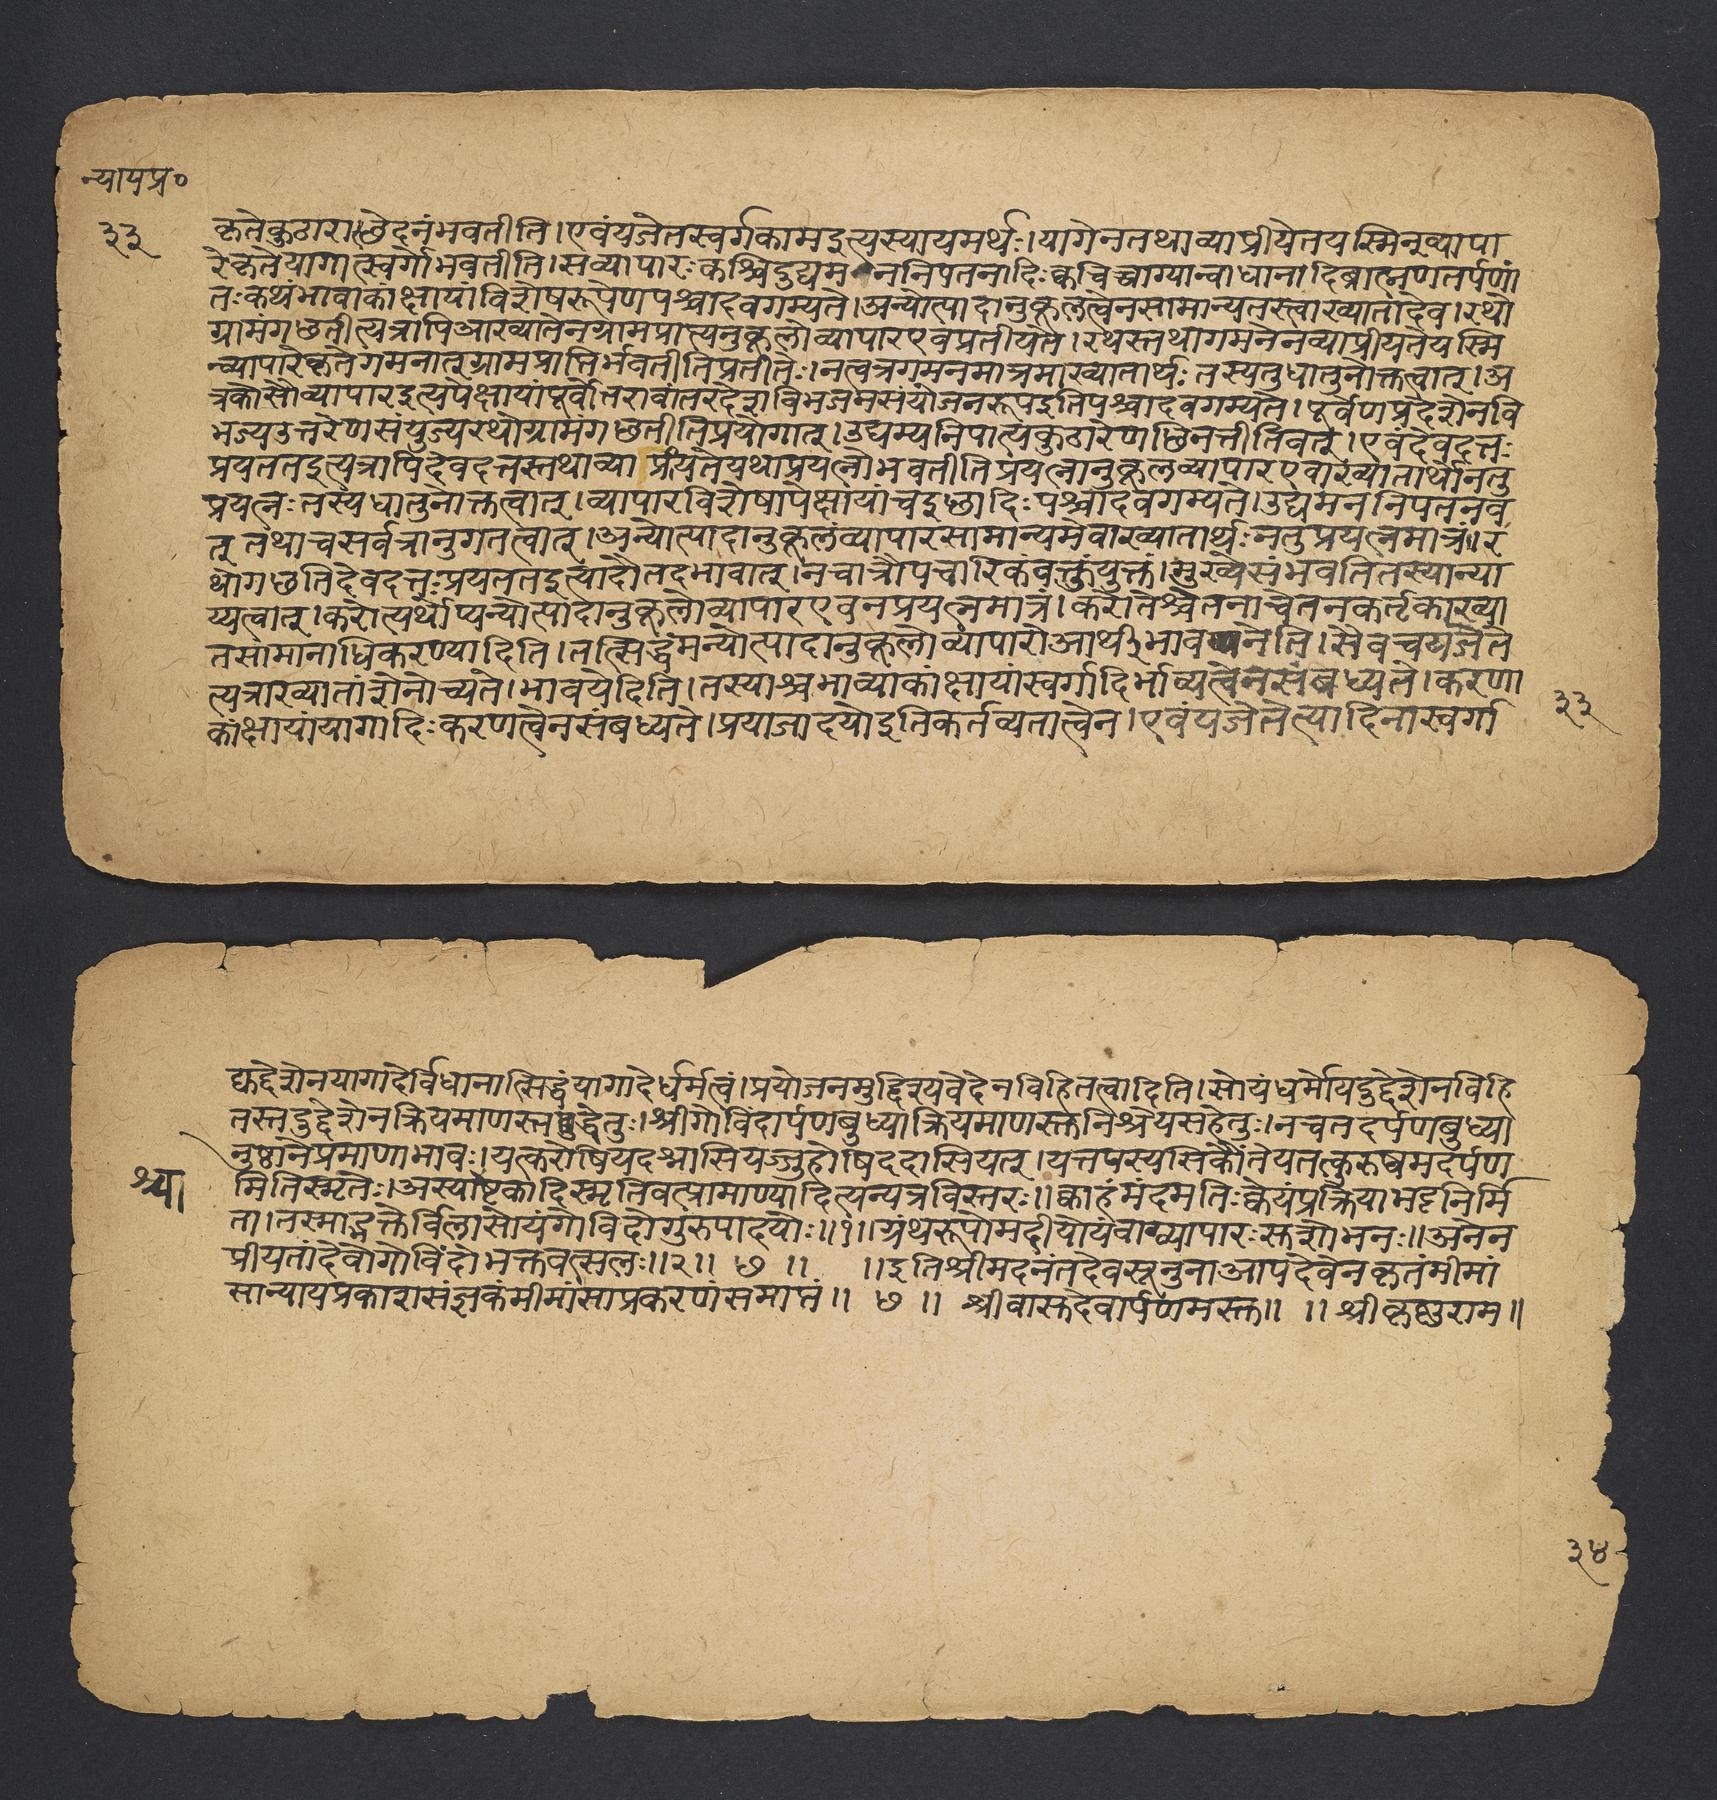 न्यायप्र०
३३
कृतेकुठाराछेदनंभवतीति।एवंयजेतस्वर्गकामइत्यस्यायमर्थः।यागेनतथाव्याप्रीयेतयस्मिन्व्यापा
रेकृतेयागात्स्वर्गोभवतीति।सव्यापारःकश्चिदुद्यमननिपतनादिःक्वचिच्चाग्यान्वाधानादिब्राह्मणतर्पणां
तःकथंभावाकांक्षायांविशेषरूपेणपश्चादवगम्यते।अन्योत्पादानुकूलत्वेनसामान्यतस्त्वाख्यातादेव।रथो
ग्रामंगछतीत्यत्रापिआख्यातेनग्रामप्राप्त्यनुकूलोव्यापारएवप्रतीयते।रथस्तथागमनेनव्याप्रीयतेयस्मि
न्व्यापारेकृतेगमनात्ग्रामप्राप्तिर्भवतीतिप्रतीतेः।नत्वत्रगमनमात्रमाख्यातार्थःतस्यतुधातुनोक्तत्वात्।अ
त्रकोसौव्यापारइत्यपेक्षायांपूर्वोत्तरावांतरदेशविभजमसंयोजनरूपइतिपश्चादवगम्यते।पूर्वेणप्रदेशेनवि
भज्यउत्तरेणसंयुज्यरथोग्रामंगछतीतिप्रयोगात्।उद्यम्यनिपात्यकुठारेणछिनत्तीतिवत्।एवंदेवदत्तः
प्रयततइत्यत्रापिदेवदत्तस्तथाव्याप्रीयतेयथाप्रयत्नोभवतीतिप्रयत्नानुकूलव्यापारएवाख्यातार्थोनतु
प्रयत्नःतस्यधातुनोक्तत्वात्।व्यापारविशेषापेक्षायांचइछादिःपश्चादवगम्यते।उद्यमननिपतनव
त्तथाचसर्वत्रानुगतत्वात्।अन्योत्पादानुकूलंव्यापारसामान्यमेवाख्यातार्थःनतुप्रयत्नमात्रं॥र
थोगछतिदेवदत्तःप्रयततइत्यादौतदभावात्।नचात्रौपचारिकंवक्तुंयुक्तं।मुख्येसंभवतितस्यान्या
य्यत्वात्।करोत्यर्थोप्यन्योत्पादानुकूलोव्यापारएवनप्रयत्नमात्रं।करोतेश्चेतनाचेतनकर्तृकाख्या
तसामानाधिकरण्यादिति।तत्सिद्धंमन्योत्पादानुकूलोव्यापारोआर्थीभावनेति।सैवचयजेते
त्यत्राख्यातांशेनोच्यते।भावयेदिति।तस्याश्चभाव्याकांक्षायांस्वर्गादिर्भाव्यत्वेनसंबध्यते।करणा
कांक्षायांयागादिःकरणत्वेनसंबध्यते।प्रयाजादयोइतिकर्तव्यतात्वेन।एवंयजेतेत्यादिनास्वर्गा
३३
द्युद्देशेनयागादेर्विधानात्सिद्धंयागादेर्धर्मत्वं।प्रयोजनमुद्दिश्यवेदेनविहितत्वादिति।सोयंधर्मोयदुद्देशेनविहि
तस्तदुद्देशेनक्रियमाणस्तद्धेतुः।श्रीगोविंदार्पणबुध्याक्रियमाणस्तुनिश्रेयसहेतुः।नचतदर्पणबुध्या
नुष्ठानेप्रमाणाभावः।यत्करोषियदश्नासियज्जुहोषिददासियत्।यत्तपस्यसिकौंतेयतत्कुरुष्वमदर्पण
श्या
मितिस्मृतेः।अस्याष्टकादिस्मृतिवत्प्रामाण्यादित्यन्यत्रविस्तरः॥क्वाहंमंदमतिःक्वेयंप्रक्रियाभट्टनिर्मि
ता।तस्माद्भक्तेर्विलासोयंगोविंदोगुरुपादयोः॥१॥ग्रंथरूपोमदीयोयंवाग्व्यापारःसुशोभनः॥अनेन
प्रीयतांदेवोगोविंदोभक्तवत्सलः॥२॥ ७ ॥ ॥इतिश्रीमदनंतदेवसूनुनाआपदेवेनकृतंमीमां
सान्यायप्रकाशसंज्ञकंमीमांसाप्रकरणंसमाप्तं॥ ७ ॥ श्रीवासुदेवार्पणमस्तु॥ ॥श्रीकृष्णुराम॥
३४